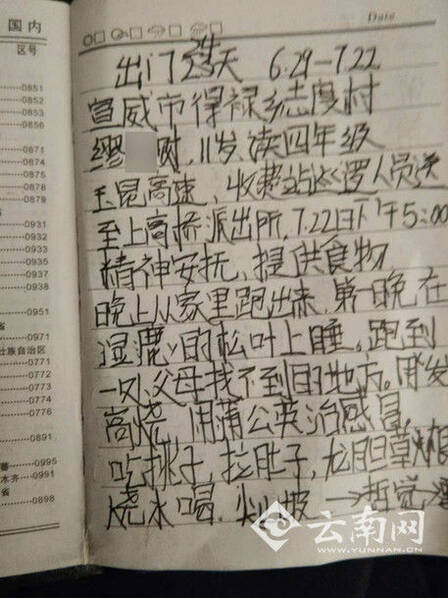 国内
区号
0851
0852
0853
0856
0871
0874
0875
0878
0879
0931
0932
0933
0935
0937
0938
0951
省
0971
壮族自治区
0773
0774
0776
0891
0995
水齐
省
0898
Date
出门24天 6.29-7.22
宣威市得禄乡志度村
缪 财,11岁,读四年级
玉昆高速,收费站巡逻人员送
至上高桥派出所,7.22日下午5:00
精神安抚、提供食物
晚上从家里跑出来,第一晚在
湿漉漉的松叶上睡,跑到
一处父母找不到的地方。有发
高烧 用蒲公英治感冒,
吃桃子,拉肚子,龙胆草根
烧水喝.
云南网
WWW.YUNNAN.CN